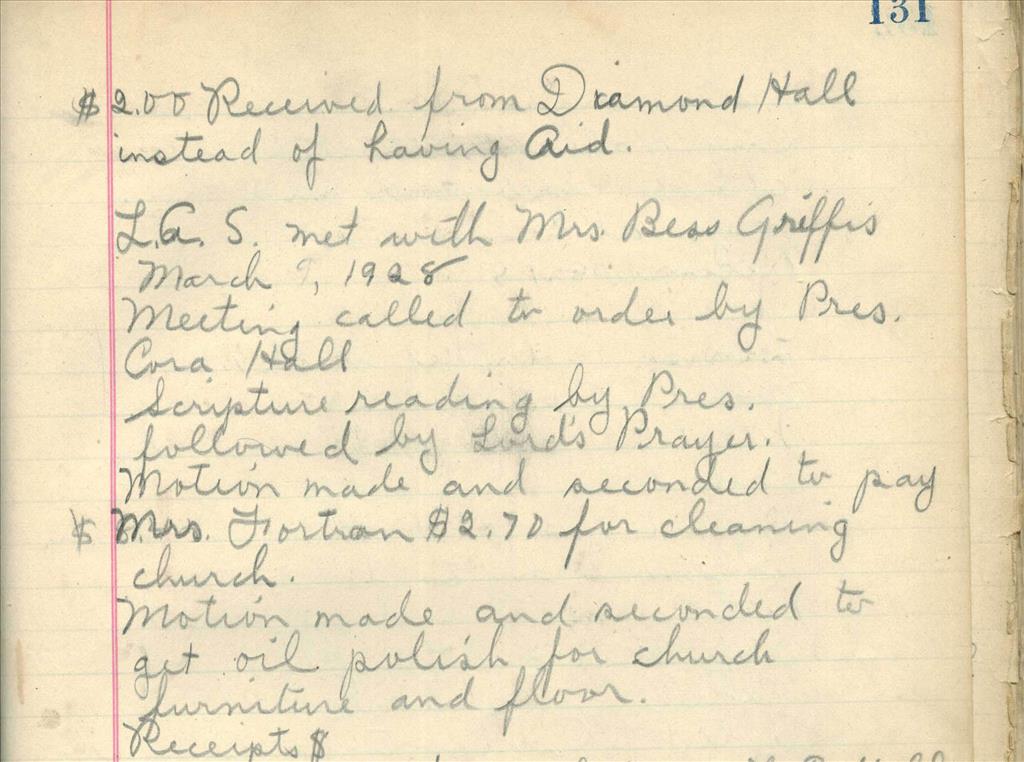 131
$2.00 Received from Diamond Hall
instead of having Aid.
L.A.S. met with Mrs. Bess Griffis
March 9, 1928
Meeting called to order by Pres.
Cora Hall
Scripture reading by Pres.
followed by Lord's Prayer.
Motion made and seconded to pay
$ Mrs. Fortran $2.70 for cleaning
church.
Motion made and seconded to
get oil polish for church
furniture and floor.
Receipts $